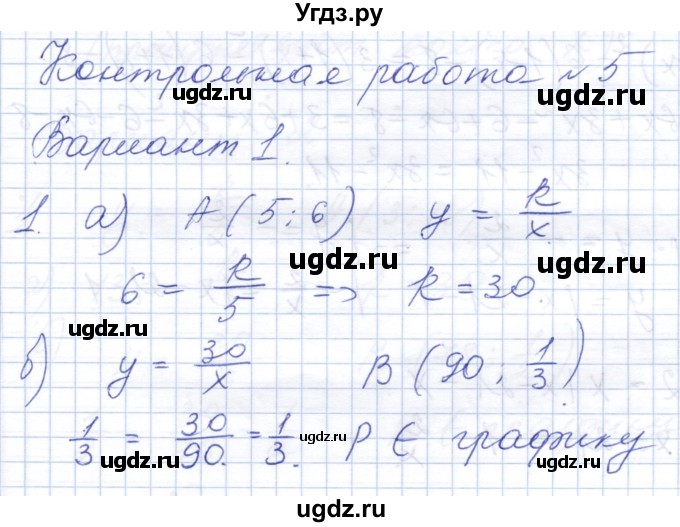 Угдз.ру
Контрольная работа №5
ugdz.ru ugdz.ru
Вариант 1.
1. а) А (5; 6) y = k/x.
ugdz.ru ugdz.ru
6 = k/5 => k = 30.
ugdz.ru
б) y = 30/x B (90; 1/3)
1/3 = 30/90. = 1/3. P ∈ графику.
ugdz.ru ugdz.ru ugdz.ru
ugdz.ru